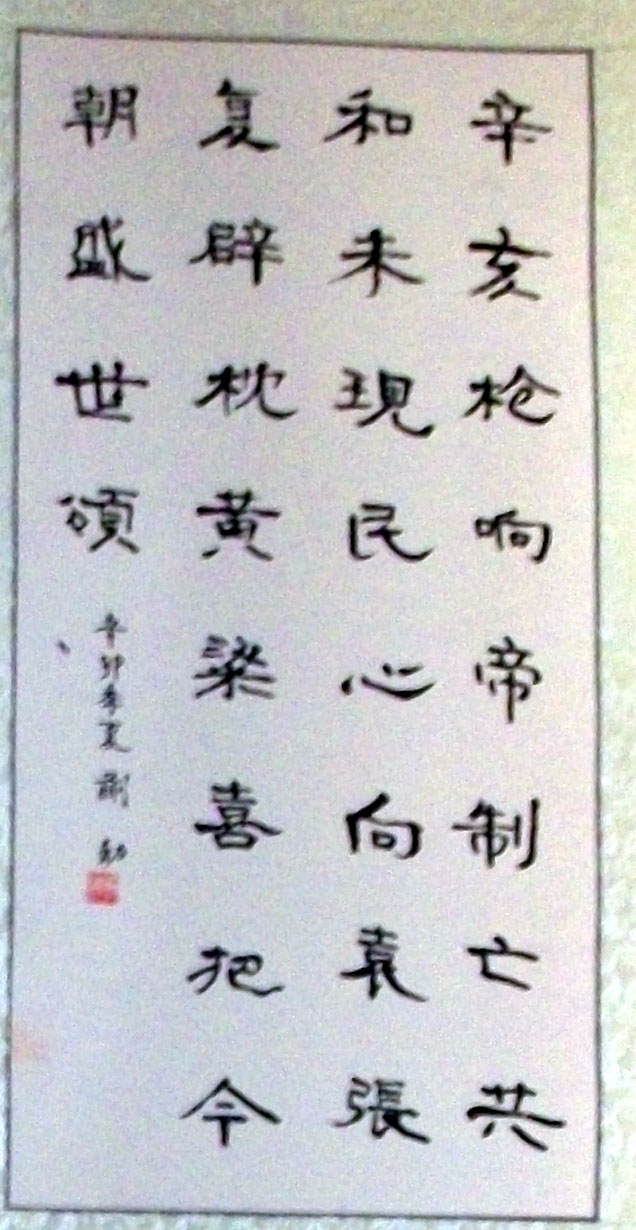 辛亥枪响帝制亡共
和未現民心向袁張
复辟枕黄粱喜把今
朝盛世頌
辛卯年夏